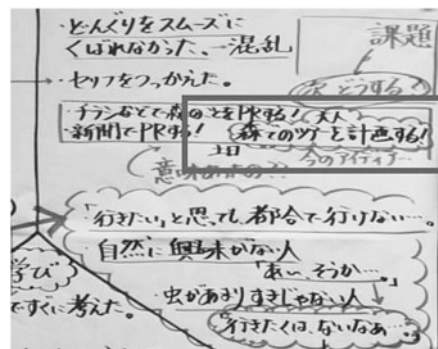 ・どんぐりをスムーズに
くばれなかった、→混乱
課題
・セリフをつっかえた。
次 どうする?
・チラシなどで森のことをPRする! 大人
・新聞でPRする! 森でのツアーを計画する!
今のアイディア…
意味あるの??
「行きたい」と思っても、都合で行けない…。
自然に興味がない人
「あぃ、そうか…。」
・虫があまりすきじゃない人
「行きたくは、ないなぁ…
学び
ですぐに考えた。